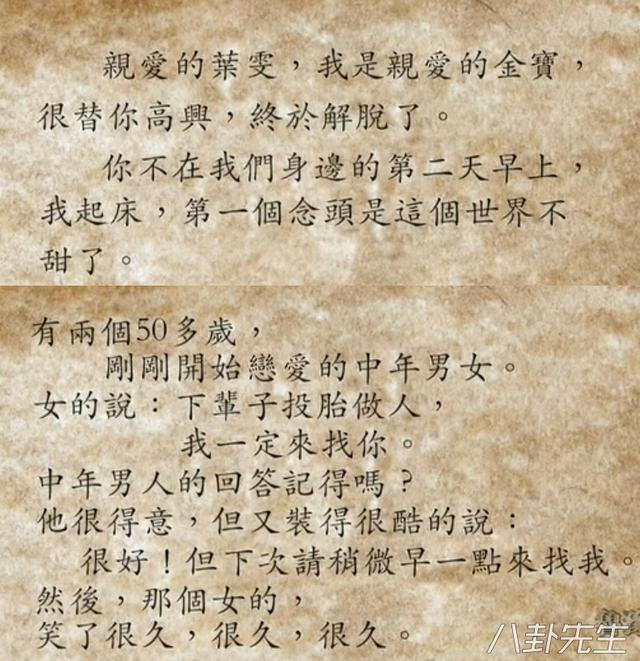 親愛的葉雯，我是親愛的金寶，
很替你高興，終於解脫了。
你不在我們身邊的第二天早上，
我起床，第一個念頭是這個世界不
甜了。
有兩個50多歲，
剛剛開始戀愛的中年男女。
女的說：下輩子投胎做人，
我一定來找你。
中年男人的回答記得嗎？
他很得意，但又裝得很酷的說：
很好！但下次請稍微早一點來找我。
然後，那個女的，
笑了很久，很久，很久。
八卦先生